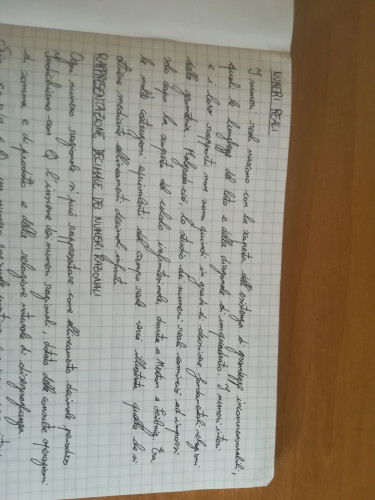 NUMERI REALI
I numeri reali nascono con la scoperta dell'esistenza di grandezze incommensurabili,
quali la lunghezza del lato e della diagonale di un quadrato. I numeri interi
e i loro rapporti non sono quindi in grado di descrivere fondamentali relazioni
della geometria. Malgrado ciò, lo studio dei numeri reali cominciò ad imporsi
solo dopo la scoperta del calcolo infinitesimale, dovuta a Newton e Leibniz. Tra
le molte costruzioni equivalenti del campo reale sarà illustrata quella che si
ottiene mediante allineamenti decimali infiniti.
RAPPRESENTAZIONE DECIMALE DEI NUMERI RAZIONALI
Ogni numero razionale si può rappresentare come allineamento decimale periodico.
Indichiamo con Q l'insieme dei numeri razionali, dotato delle consuete operazioni
di somma e di prodotto e della relazione naturale di disuguaglianza.
un numero razionale positivo